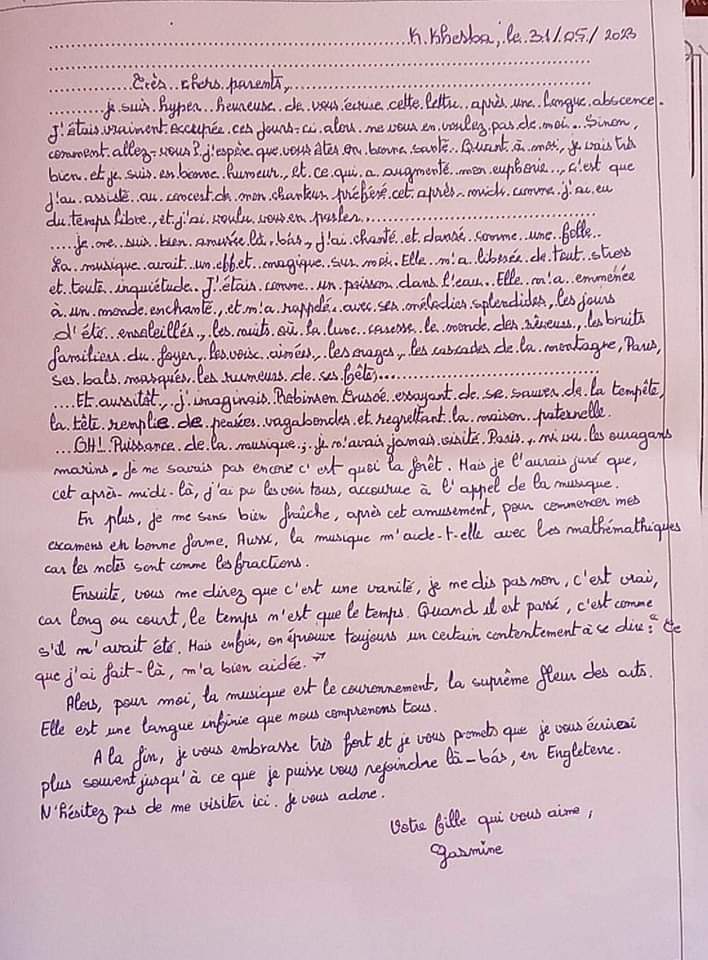 K. Khesba, le 31/05/2023
Très chers parents,
je suis hyper heureuse de vous écrire cette lettre après une longue abscence.
J'étais vraiment occupée ces jours-ci alors ne vous en voulez pas de moi... Sinon,
comment allez-vous? j'espère que vous êtes en bonne santé. Quant à moi, je vais très
bien et je suis en bonne humeur, et ce qui a augmenté mon euphorie, c'est que
j'ai assisté au concert de mon chanteur préféré cet après-midi comme j'ai eu
du temps libre, et j'ai voulu vous en parler.
je me suis bien amusée là-bas, j'ai chanté et dansé comme une folle.
La musique avait un effet magique sur moi. Elle m'a libérée de tout stress
et toute inquiétude. J'étais comme un poisson dans l'eau. Elle m'a emmenée
à un monde enchanté, et m'a rappelé avec ses mélodies splendides, les jours
d'été ensoleillés, les nuits où la lune caresse le monde des rêveurs, les bruits
familiers du foyer, les voix aimées, les orages, les cascades de la montagne, Paris,
ses bals masqués, les rumeurs de ses fêtes...
Et aussitôt, j'imaginais Robinson Crusoé essayant de se sauver de la tempête,
la tête remplie de pensées vagabondes et regrettant la maison paternelle.
OH! Puissance de la musique; je n'avais jamais visité Paris, ni vu les ouragans
marins. Je ne savais pas encore c'est quoi la forêt. Mais je l'aurais juré que,
cet après-midi-là, j'ai pu les voir tous, accourue à l'appel de la musique.
En plus, je me sens bien fraîche, après cet amusement, pour commencer mes
examens en bonne forme. Aussi, la musique m'aide-t-elle avec les mathémathiques
car les notes sont comme les fractions.
Ensuite, vous me direz que c'est une vanité, je ne dis pas non, c'est vrai,
car long ou court, le temps n'est que le temps. Quand il est passé, c'est comme
s'il n'avait été. Mais enfin, on éprouve toujours un certain contentement à se dire: "Ce
que j'ai fait-là, m'a bien aidée."
Alors, pour moi, la musique est le couronnement, la suprême fleur des arts.
Elle est une langue infinie que nous comprenons tous.
A la fin, je vous embrasse très fort et je vous promets que je vous écrirai
plus souvent jusqu'à ce que je puisse vous rejoindre là-bas, en Engleterre.
N'hésitez pas de me visiter ici. Je vous adore.
Votre fille qui vous aime,
Jasmine